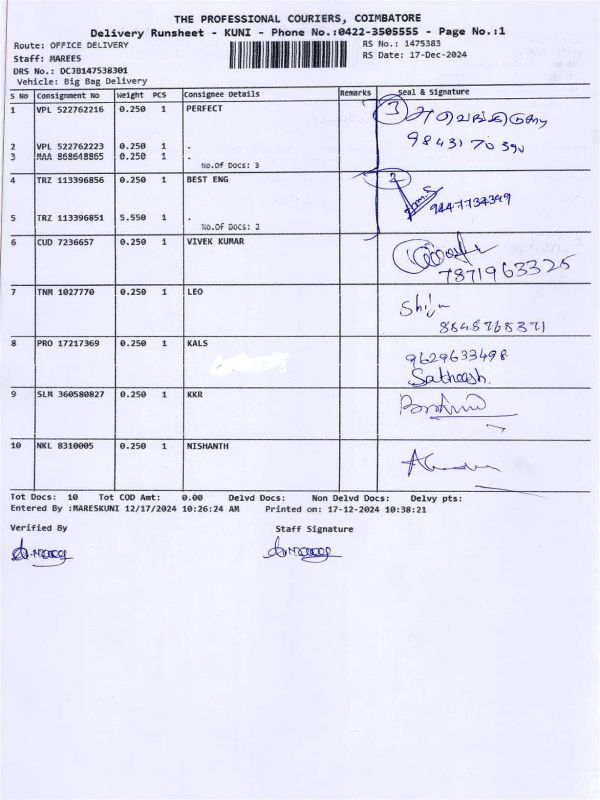 THE PROFESSIONAL COURIERS, COIMBATORE
Delivery Runsheet - KUNI - Phone No.:0422-3505555 - Page No.:1
Route: OFFICE DELIVERY RS No.: 1475383
Staff: MAREES RS Date: 17-Dec-2024
DRS No.: DCJB147538301
Vehicle: Big Bag Delivery
S No Consignment No Weight PCS Consignee Details Remarks Seal & Signature
1 VPL 522762216 0.250 1 PERFECT 3
2 VPL 522762223 0.250 1 .
3 MAA 868648865 0.250 1 .
No.Of Docs: 3
4 TRZ 113396856 0.250 1 BEST ENG 2
9447734349
5 TRZ 113396851 5.550 1 .
No.Of Docs: 2
6 CUD 7236657 0.250 1 VIVEK KUMAR
7871963325
7 TNM 1027770 0.250 1 LEO
8 PRO 17217369 0.250 1 KALS 9629633498
Satheesh.
9 SLM 360580827 0.250 1 KKR
10 NKL 8310005 0.250 1 NISHANTH
Tot Docs: 10 Tot COD Amt: 0.00 Delvd Docs: Non Delvd Docs: Delvy pts:
Entered By :MARESKUNI 12/17/2024 10:26:24 AM Printed on: 17-12-2024 10:38:21
Verified By Staff Signature